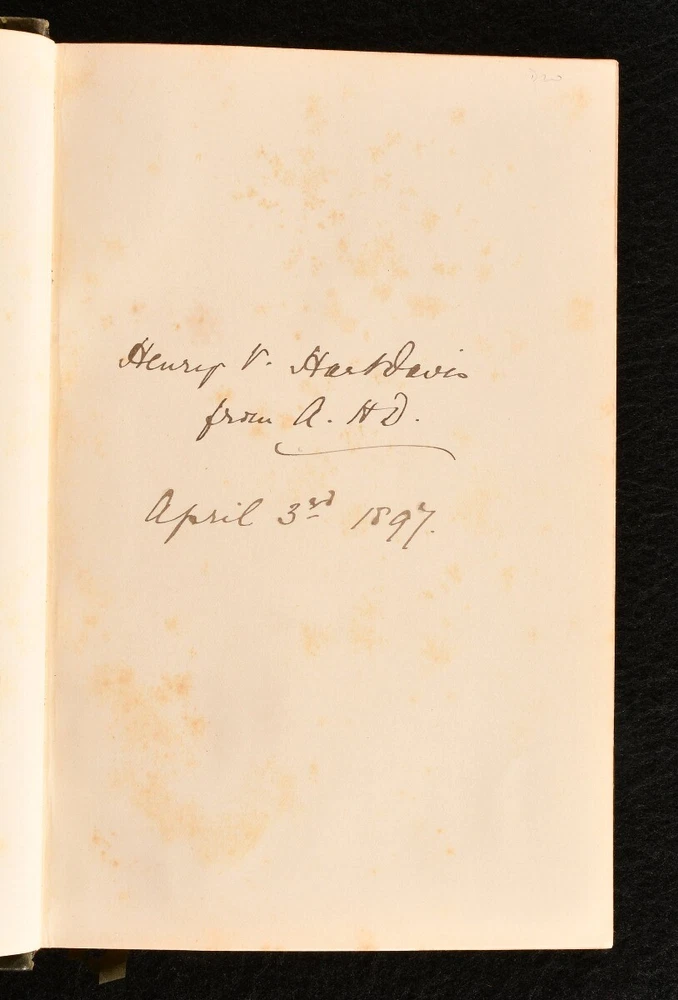 Henry V. Hart Davis
from A. H D.
April 3rd 1897.